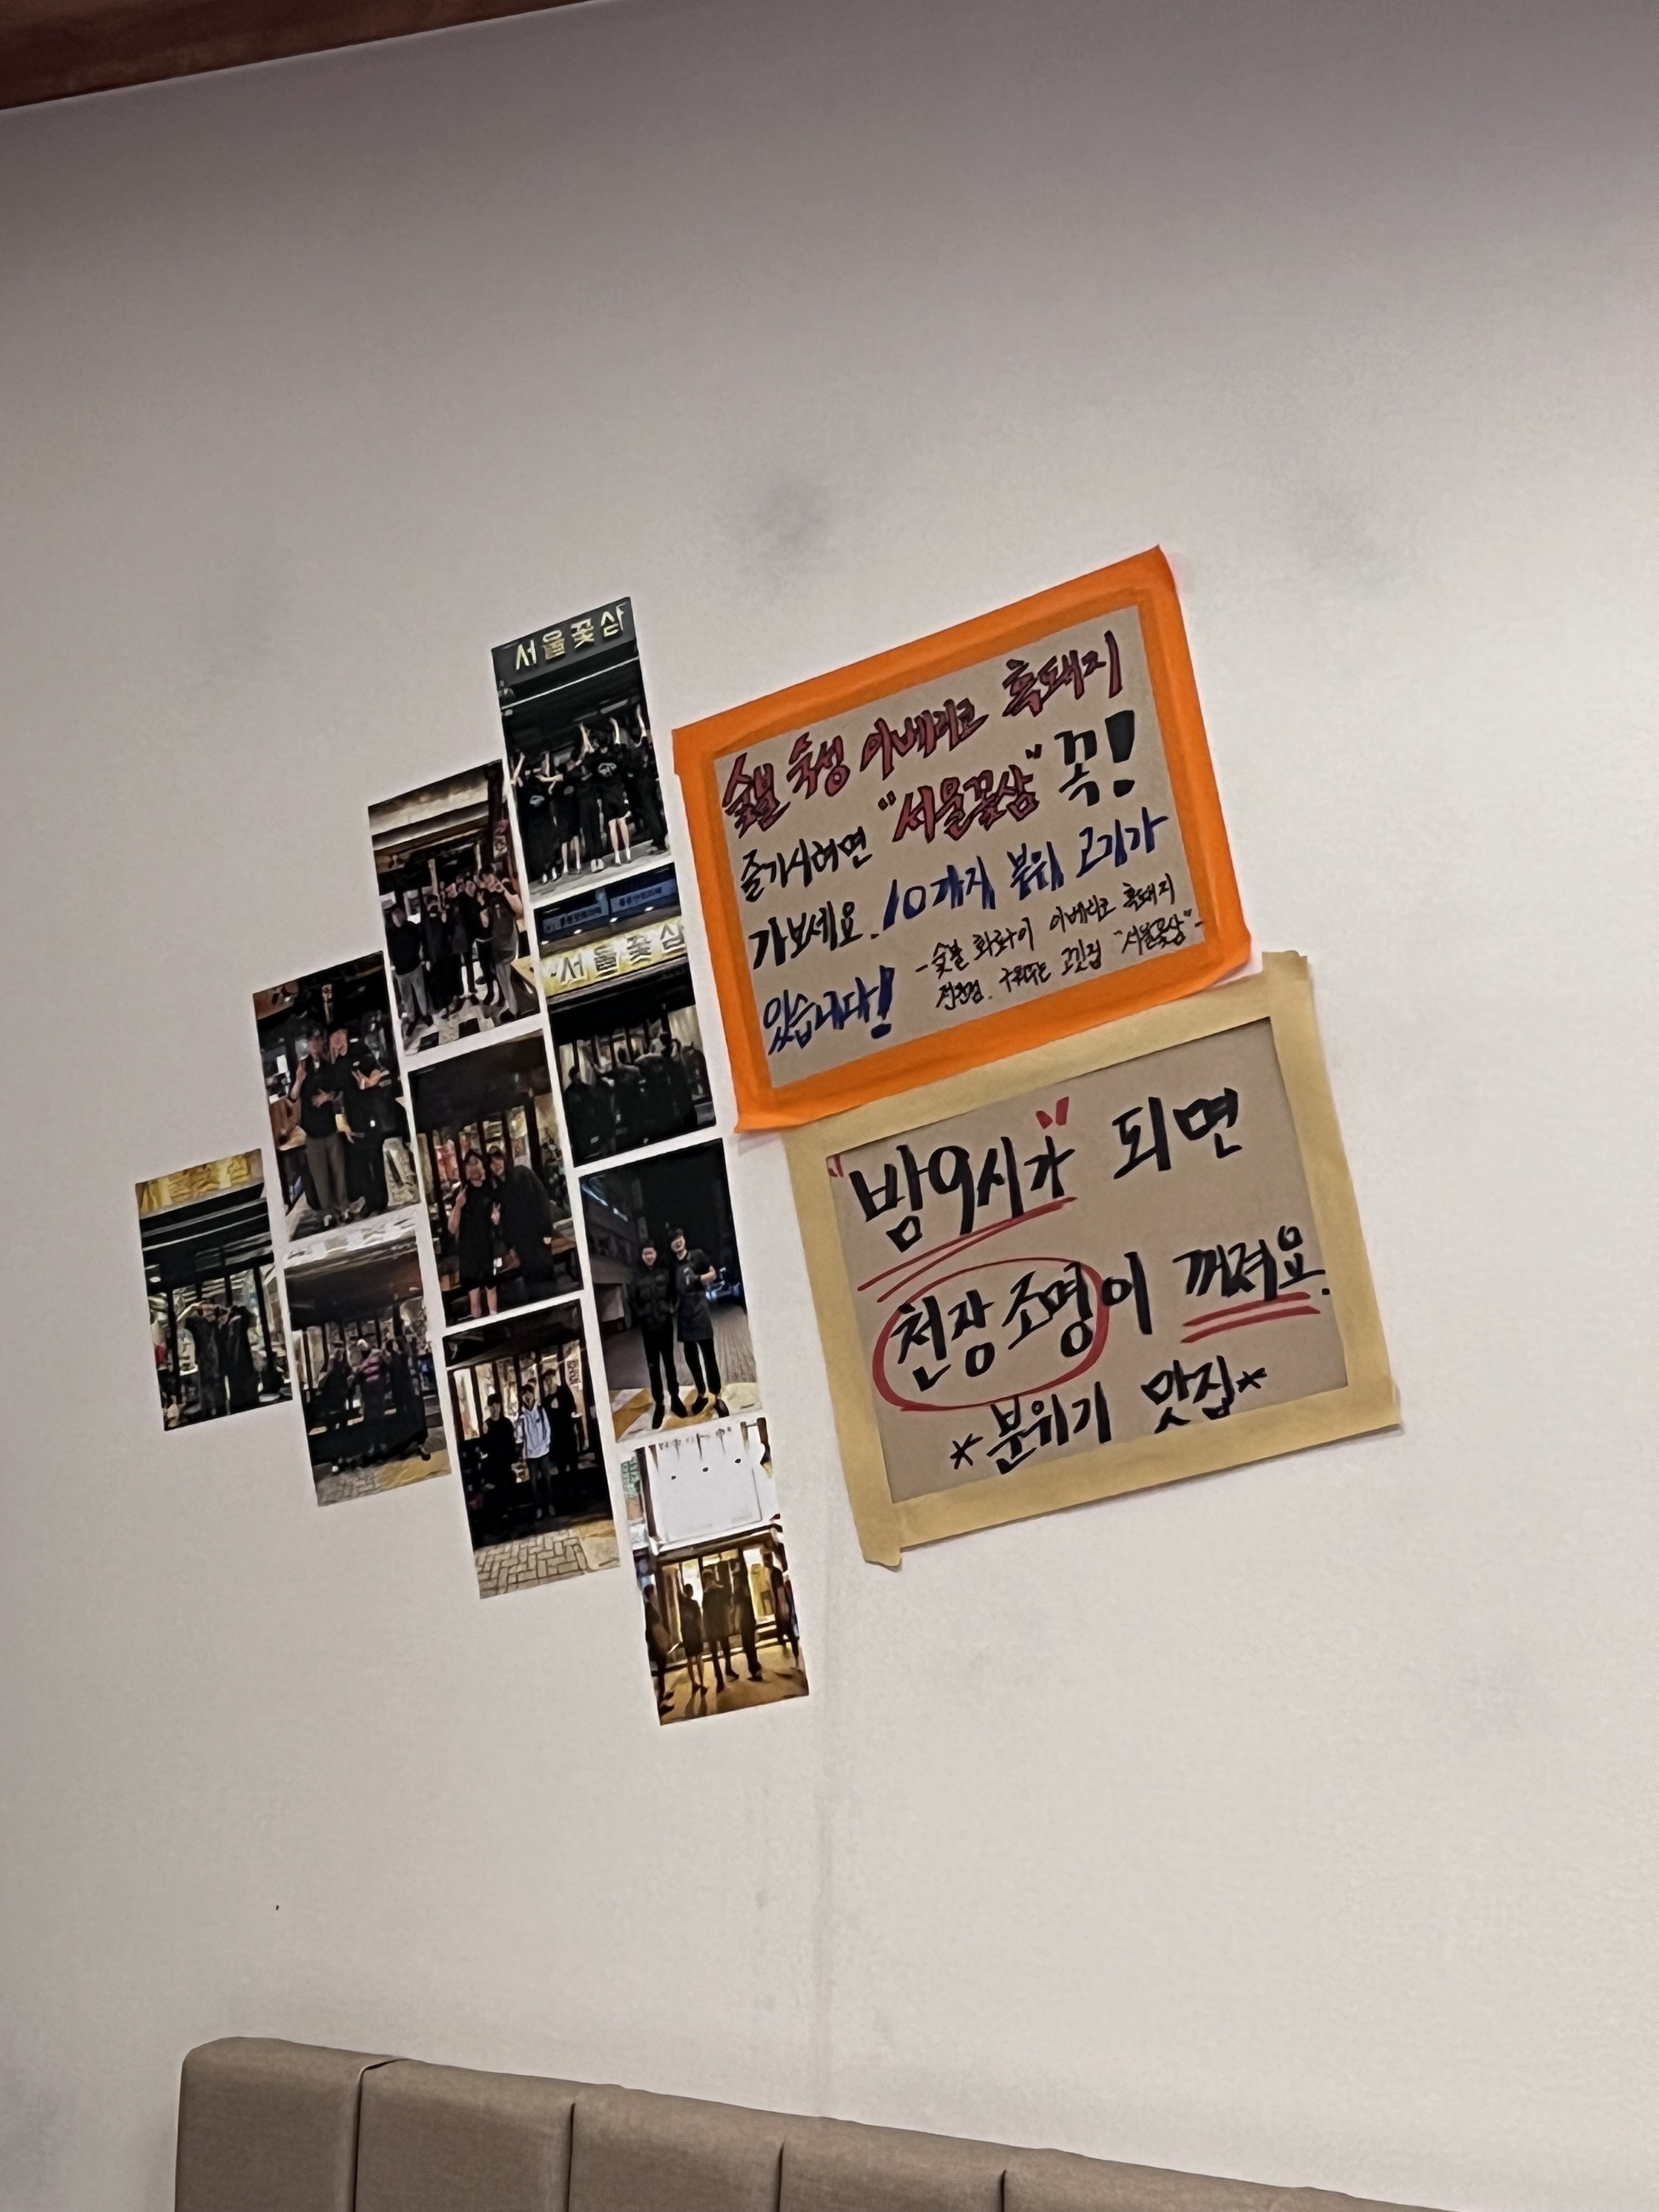 서울꽃삼
서울꽃삼
서울꽃삼
숯불 숙성 이베리코 흑돼지
즐기시려면 "서울꽃삼" 꼭!
가보세요. 10가지 부위 고기가
있습니다!
-숯불 화로구이 이베리코 흑돼지
전문점. 구워주는 고깃집 "서울꽃삼"-
"밤9시가" 되면
천장조명이 꺼져요.
*분위기 맛집*